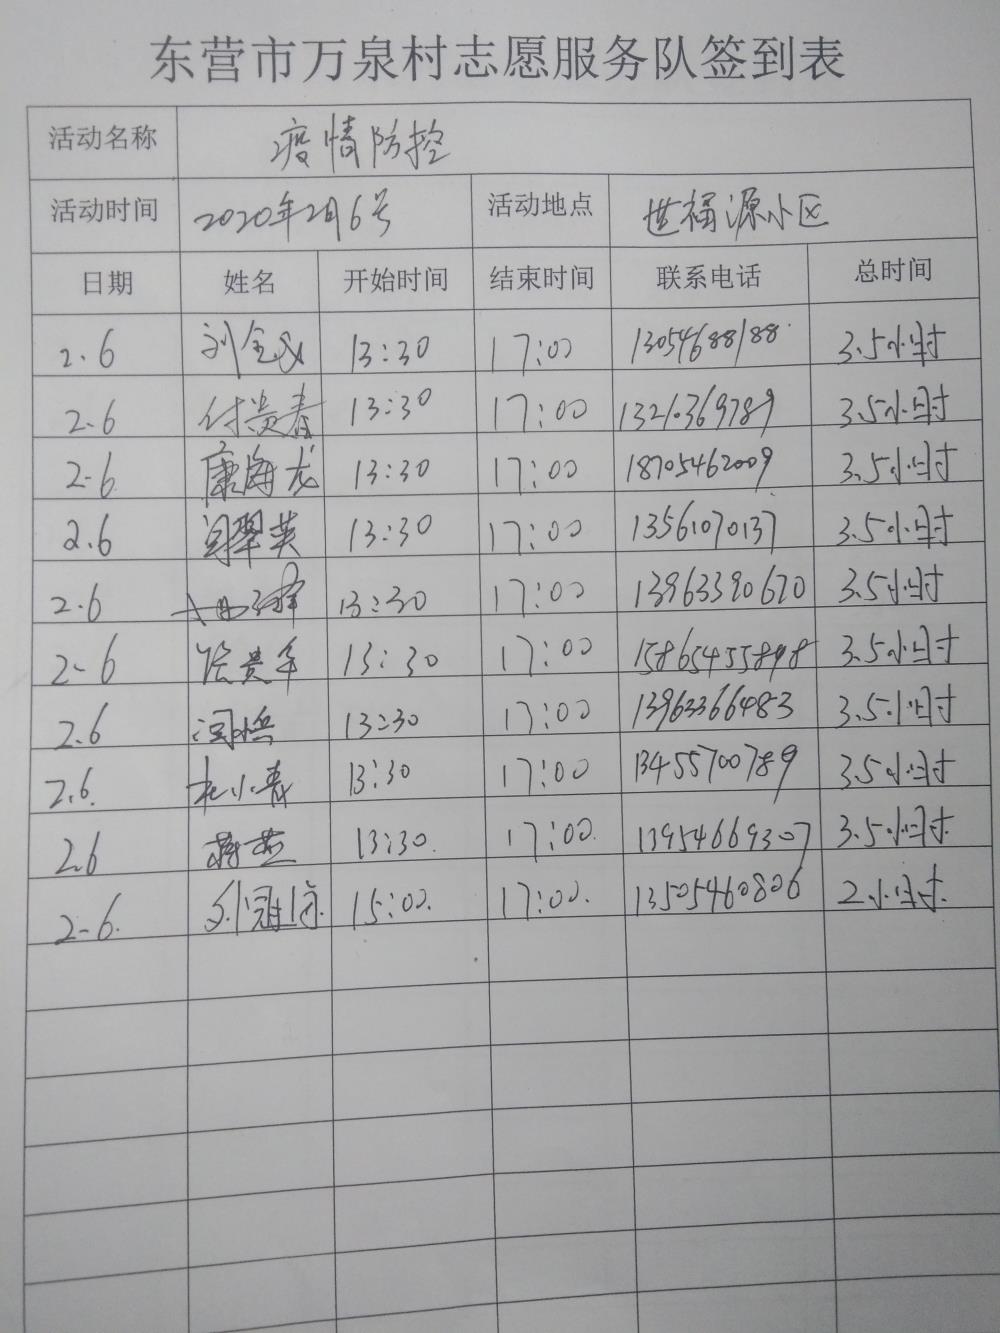 东营市万泉村志愿服务队签到表
活动名称 疫情防控
活动时间 2020年2月6号 活动地点 世福源小区
日期 姓名 开始时间 结束时间 联系电话 总时间
2.6 13:30 17:00 13054688188 3.5小时
2.6 付贵春 13:30 17:00 13210369789 3.5小时
2.6 康海龙 13:30 17:00 18705462009 3.5小时
2.6 闫翠英 13:30 17:00 13561070137 3.5小时
2.6 13:30 17:00 13963390670 3.5小时
2-6 13:30 17:00 15865455898 3.5小时
2.6 13:30 17:00 13963366483 3.5小时
2.6. 杜小青 13:30 17:00 13455700789 3.5小时
2.6 蒋燕 13:30. 17:00. 13954669307 3.5小时
2-6. 15:00. 17:00. 13505460806 2小时.